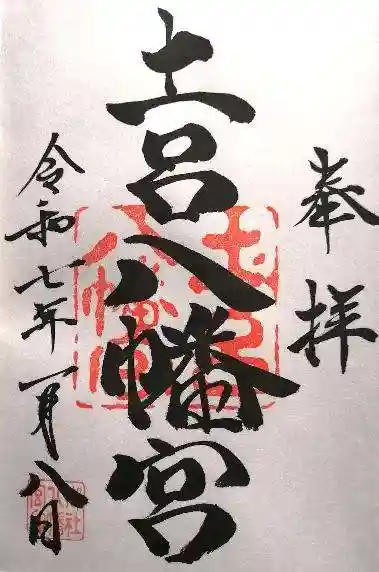 奉拝
土呂八幡宮
令和七年一月八日